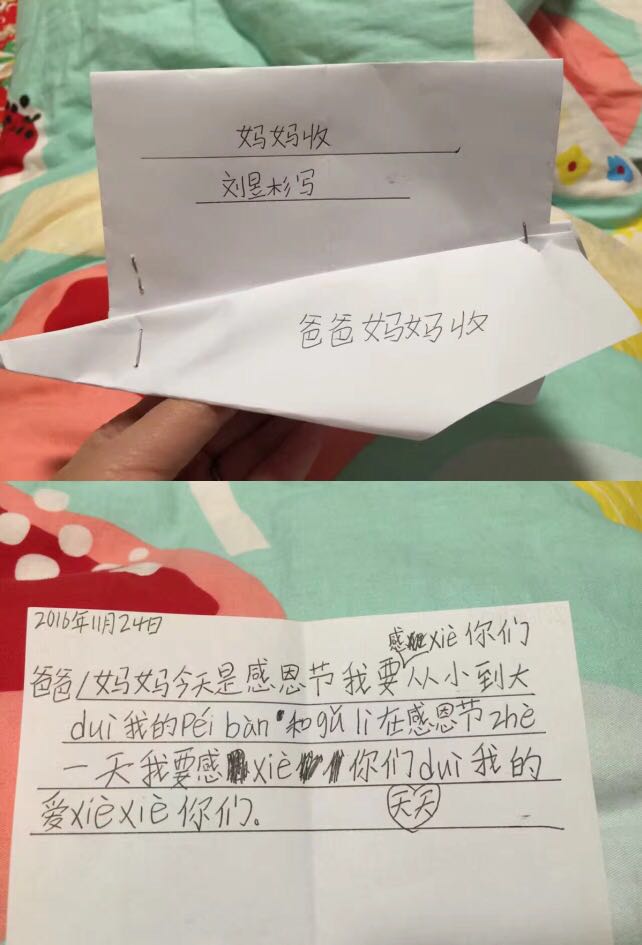 妈妈收
刘昱杉写
爸爸妈妈收
2016年11月24日
感xiè你们
爸爸/妈妈今天是感恩节我要从小到大
duì我的péi bàn和gǔ lì在感恩节zhè
一天我要感xiè你们duì我的
爱xièxiè你们。
天天